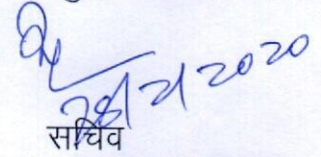 28/2/2020
सचिव